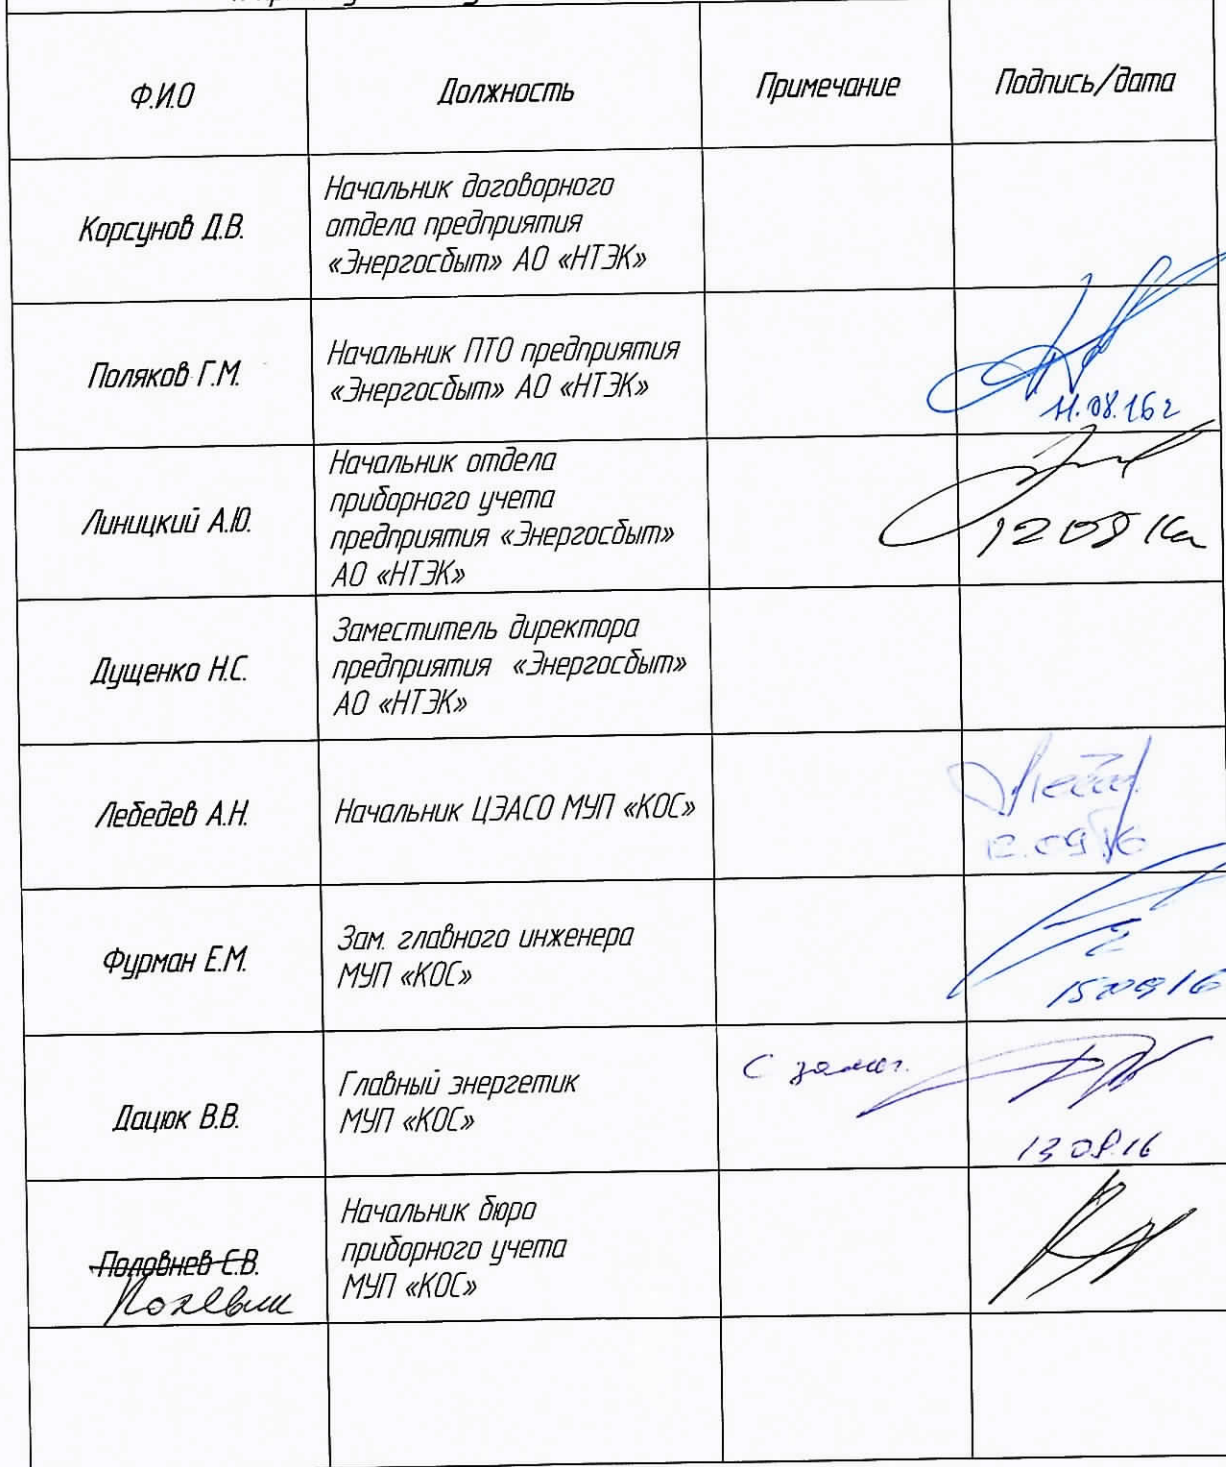 Ф.И.О
Должность
Примечание
Подпись/дата
Корсунов Д.В.
Начальник договорного
отдела предприятия
«Энергосбыт» АО «НТЭК»
Поляков Г.М.
Начальник ПТО предприятия
«Энергосбыт» АО «НТЭК»
11.08.16г
Линицкий А.Ю.
Начальник отдела
приборного учета
предприятия «Энергосбыт»
АО «НТЭК»
12 08 16г
Дущенко Н.С.
Заместитель директора
предприятия «Энергосбыт»
АО «НТЭК»
Лебедев А.Н.
Начальник ЦЭАСО МУП «КОС»
12.09.16
Фурман Е.М.
Зам. главного инженера
МУП «КОС»
Дацюк В.В.
Главный энергетик
МУП «КОС»
С замеч.
13 08.16
Половнев С.В.
Начальник бюро
приборного учета
МУП «КОС»